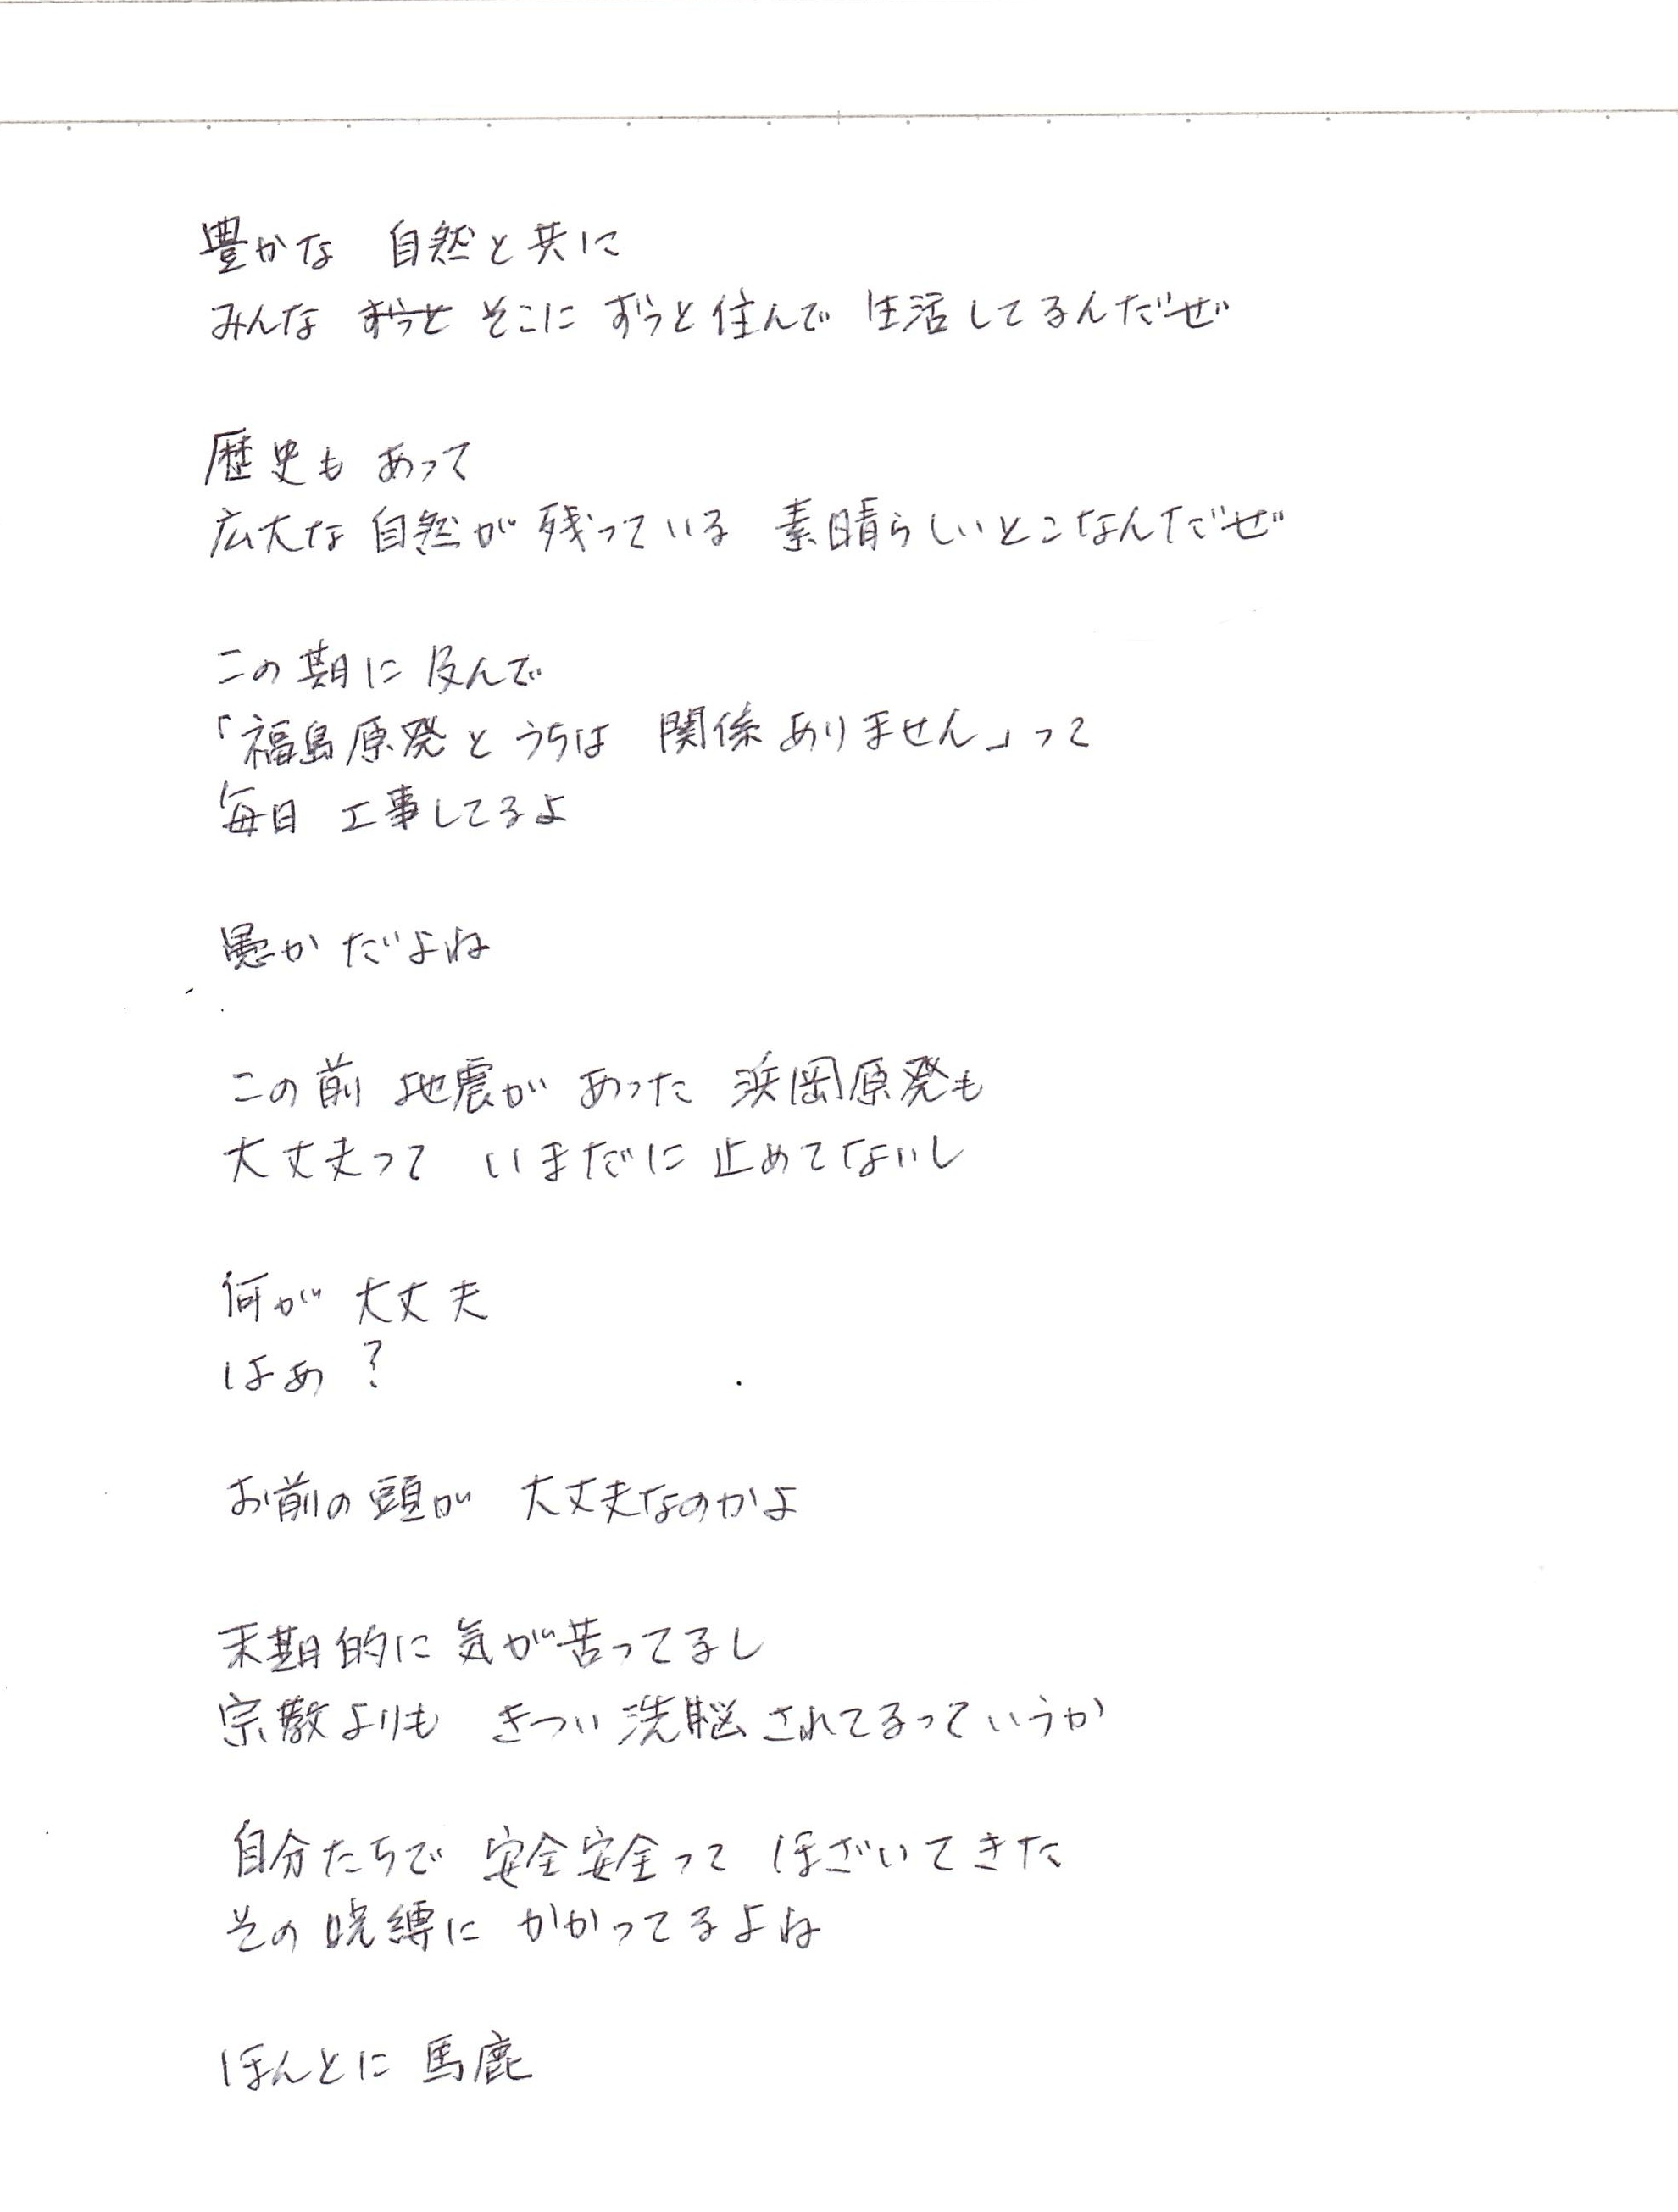 豊かな 自然と共に
みんな ずうっと そこに ずうっと住んで 生活してるんだぜ
歴史も あって
広大な 自然が 残っている 素晴らしいとこなんだぜ
この期に及んで
「福島原発と うちは 関係ありません」って
毎日 工事してるよ
愚か だよね
この前 地震が あった 浜岡原発も
大丈夫って いまだに 止めてないし
何が 大丈夫
はあ?
お前の頭が 大丈夫なのかよ
末期的に 気が苦ってるし
宗教よりも きつい 洗脳 されてるっていうか
自分たちで 安全安全って ほざいてきた
その 呪縛に かかってるよね
ほんとに 馬鹿